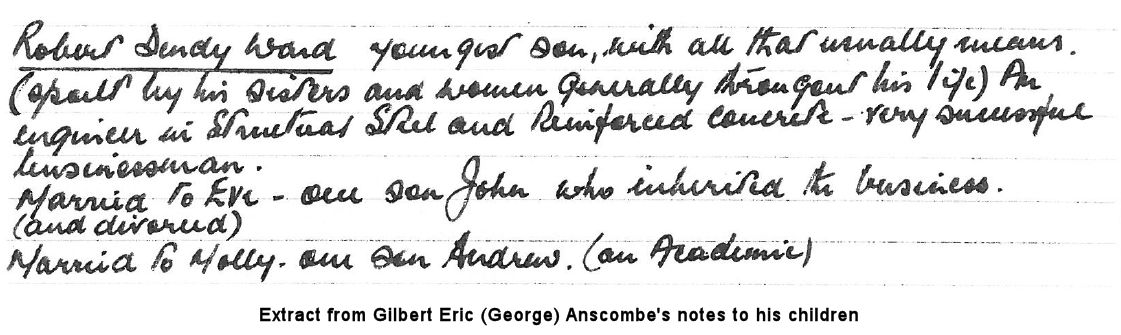 Robert Dendy Ward youngest son, with all that usually means.
(spoilt by his sisters and women generally througout his life) An
engineer in Structural Steel and Reinforced Concrete - very successful
businessman.
Married to Eve - one son John who inherited the business.
(and divorced)
Married to Molly - one son Andrew. (an Academic)
Extract from Gilbert Eric (George) Anscombe's notes to his children